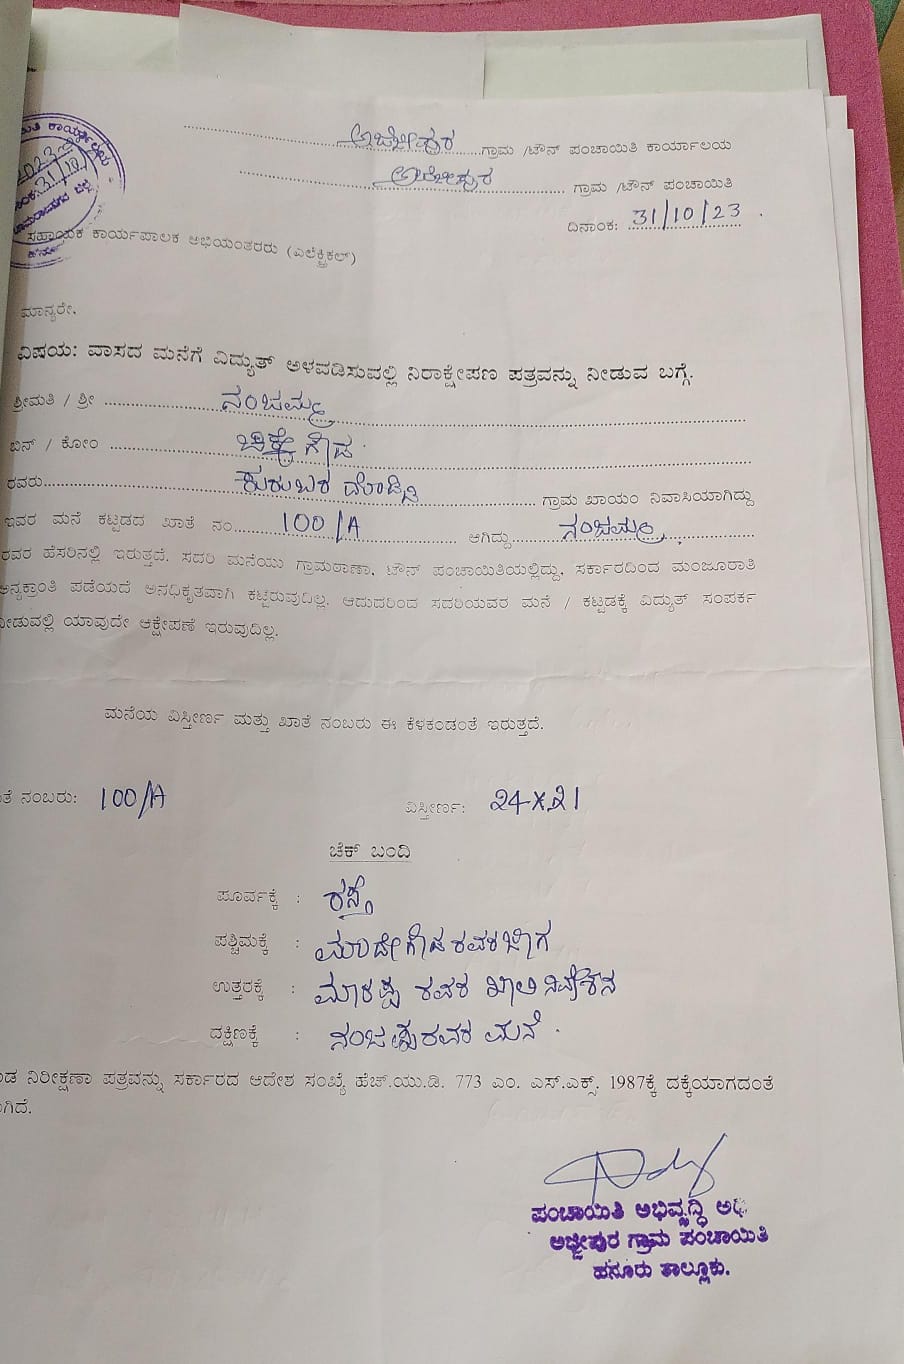 ಅಜ್ಜೀಪುರ ಗ್ರಾಮ /ಟೌನ್ ಪಂಚಾಯಿತಿ ಕಾರ್ಯಾಲಯ
ಅಜ್ಜೀಪುರ ಗ್ರಾಮ /ಟೌನ್ ಪಂಚಾಯಿತಿ
ದಿನಾಂಕ: 31/10/23
31/10/
ಸಹಾಯಕ ಕಾರ್ಯಪಾಲಕ ಅಭಿಯಂತರರು (ಎಲೆಕ್ಟ್ರಿಕಲ್)
ಮಾನ್ಯರೇ,
ವಿಷಯ: ವಾಸದ ಮನೆಗೆ ವಿದ್ಯುತ್ ಅಳವಡಿಸುವಲ್ಲಿ ನಿರಾಕ್ಷೇಪಣ ಪತ್ರವನ್ನು ನೀಡುವ ಬಗ್ಗೆ.
ಶ್ರೀಮತಿ / ಶ್ರೀ ನಂಜಮ್ಮ
ಬಿನ್ / ಕೋಂ ಚಿಕ್ಕೇಗೌಡ
ರವರು ಕುರುಬರ ಗ್ರಾಮ ಖಾಯಂ ನಿವಾಸಿಯಾಗಿದ್ದು
ಇವರ ಮನೆ ಕಟ್ಟಡದ ಖಾತೆ ನಂ 100/A ಆಗಿದ್ದು ನಂಜಮ್ಮ
ರವರ ಹೆಸರಿನಲ್ಲಿ ಇರುತ್ತದೆ. ಸದರಿ ಮನೆಯು ಗ್ರಾಮಠಾಣಾ, ಟೌನ್ ಪಂಚಾಯಿತಿಯಲ್ಲಿದ್ದು, ಸರ್ಕಾರದಿಂದ ಮಂಜೂರಾತಿ
ಅನ್ಯಕ್ರಾಂತಿ ಪಡೆಯದೆ ಅನಧಿಕೃತವಾಗಿ ಕಟ್ಟಿರುವುದಿಲ್ಲ. ಆದುದರಿಂದ ಸದರಿಯವರ ಮನೆ / ಕಟ್ಟಡಕ್ಕೆ ವಿದ್ಯುತ್ ಸಂಪರ್ಕ
ನೀಡುವಲ್ಲಿ ಯಾವುದೇ ಆಕ್ಷೇಪಣೆ ಇರುವುದಿಲ್ಲ.
ಮನೆಯ ವಿಸ್ತೀರ್ಣ ಮತ್ತು ಖಾತೆ ನಂಬರು ಈ ಕೆಳಕಂಡಂತೆ ಇರುತ್ತದೆ.
ತೆ ನಂಬರು: 100/A ವಿಸ್ತೀರ್ಣ: 24×21
ಚೆಕ್ ಬಂದಿ
ಪೂರ್ವಕ್ಕೆ : ರಸ್ತೆ
ಪಶ್ಚಿಮಕ್ಕೆ : ಮಾದೇಗೌಡ ರವರ ಜಾಗ
ಉತ್ತರಕ್ಕೆ : ಮಾರಪ್ಪ ರವರ ಖಾಲಿ ನಿವೇಶನ
ದಕ್ಷಿಣಕ್ಕೆ : ನಂಜಪ್ಪರವರ ಮನೆ.
ನಿರೀಕ್ಷಣಾ ಪತ್ರವನ್ನು ಸರ್ಕಾರದ ಆದೇಶ ಸಂಖ್ಯೆ ಹೆಚ್.ಯು.ಡಿ. 773 ಎಂ. ಎಸ್.ಎಕ್ಸ್. 1987ಕ್ಕೆ ದಕ್ಕೆಯಾಗದಂತೆ
ಗಿದೆ.
ಪಂಚಾಯಿತಿ ಅಭಿವೃದ್ಧಿ
ಅಜ್ಜೀಪುರ ಗ್ರಾಮ ಪಂಚಾಯಿತಿ
ಹನೂರು ತಾಲ್ಲೂಕು.